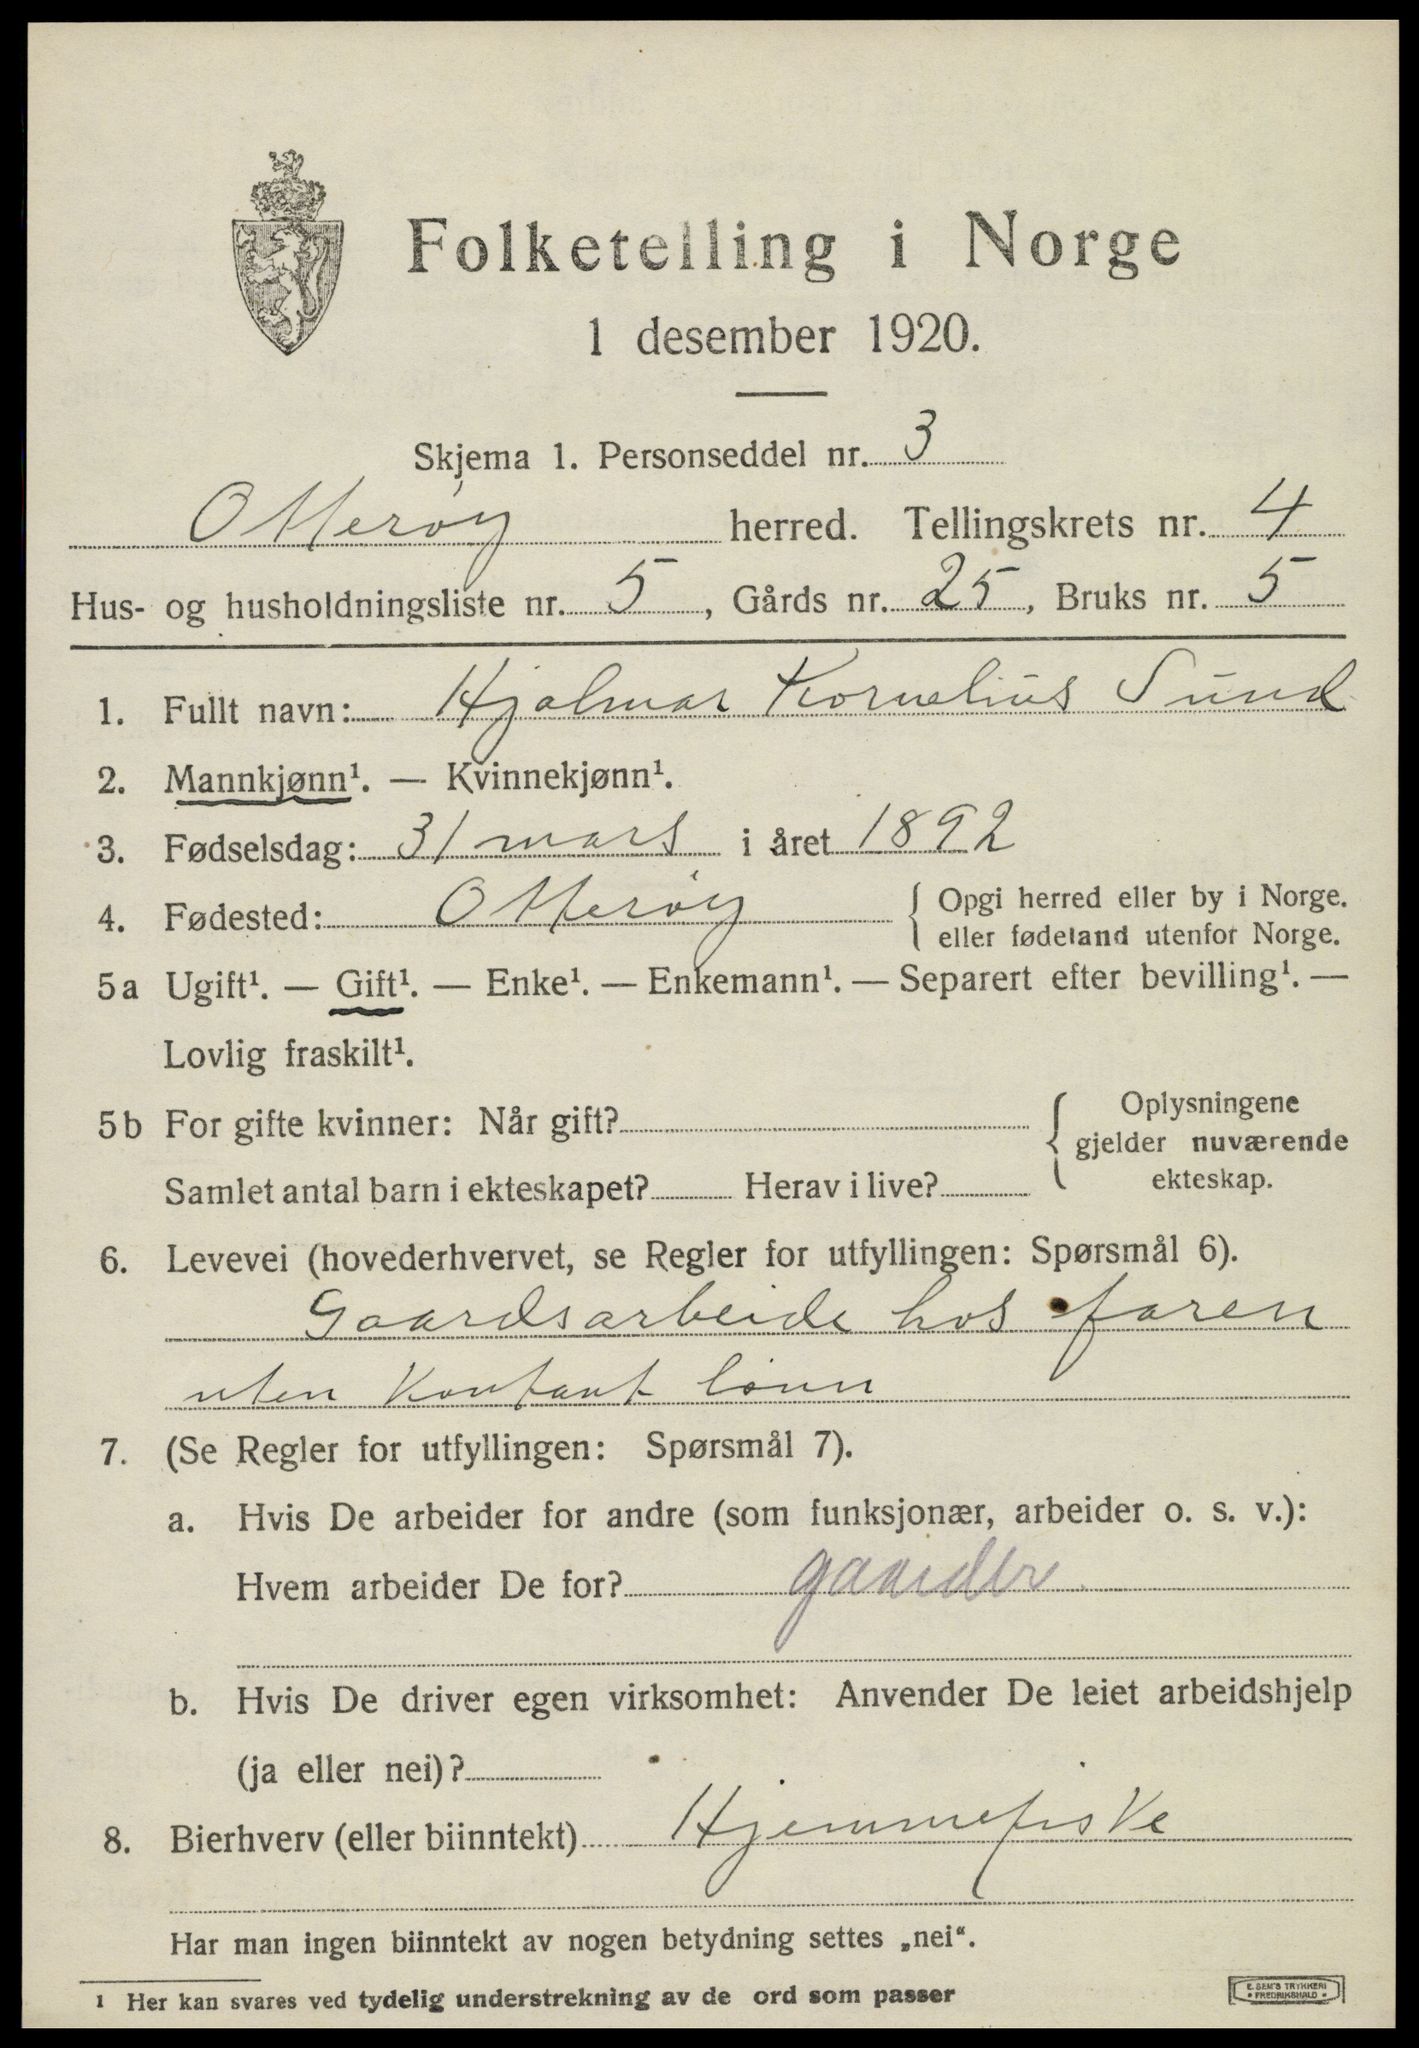 Folketelling i Norge
1 desember 1920.
Skjema 1. Personseddel nr. 3
Otterøy herred. Tellingskrets nr. 4
Hus- og husholdningsliste nr. 5, Gårds nr. 25, Bruks nr. 5
1. Fullt navn: Hjalmar Kornelius Sund
2. Mannkjønn¹. — Kvinnekjønn¹.
3. Fødselsdag: 31 mars i året 1892
4. Fødested: Otterøy { Opgi herred eller by i Norge.
eller fødeland utenfor Norge.
5a Ugift¹. — Gift¹. — Enke¹. — Enkemann¹. — Separert efter bevilling¹. —
Lovlig fraskilt¹.
5b For gifte kvinner: Når gift? { Oplysningene
gjelder nuværende
Samlet antal barn i ekteskapet? Herav i live? ekteskap.
6. Levevei (hovederhvervet, se Regler for utfyllingen: Spørsmål 6).
Gaardsarbeide hos faren
uten Kontant lønn
7. (Se Regler for utfyllingen: Spørsmål 7).
a. Hvis De arbeider for andre (som funksjonær, arbeider o. s. v.):
Hvem arbeider De for?
b. Hvis De driver egen virksomhet: Anvender De leiet arbeidshjelp
(ja eller nei)?
8. Bierhverv (eller biinntekt) Hjemmefiske
Har man ingen biinntekt av nogen betydning settes „nei“.
1 Her kan svares ved tydelig understrekning av de ord som passer
E. SEM'S TRYKKERI
FREDRIKSHALD